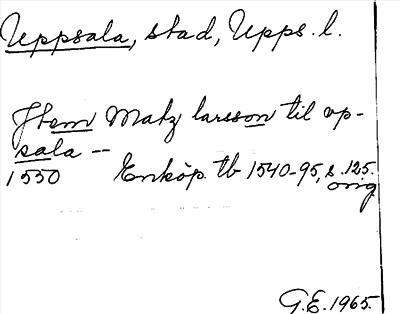 Uppsala, stad, Upps. l.
Item Matz larsson til vp-
sala --
1550 Enköp. tb 1540-95, s. 125.
orig.
G.E. 1965.